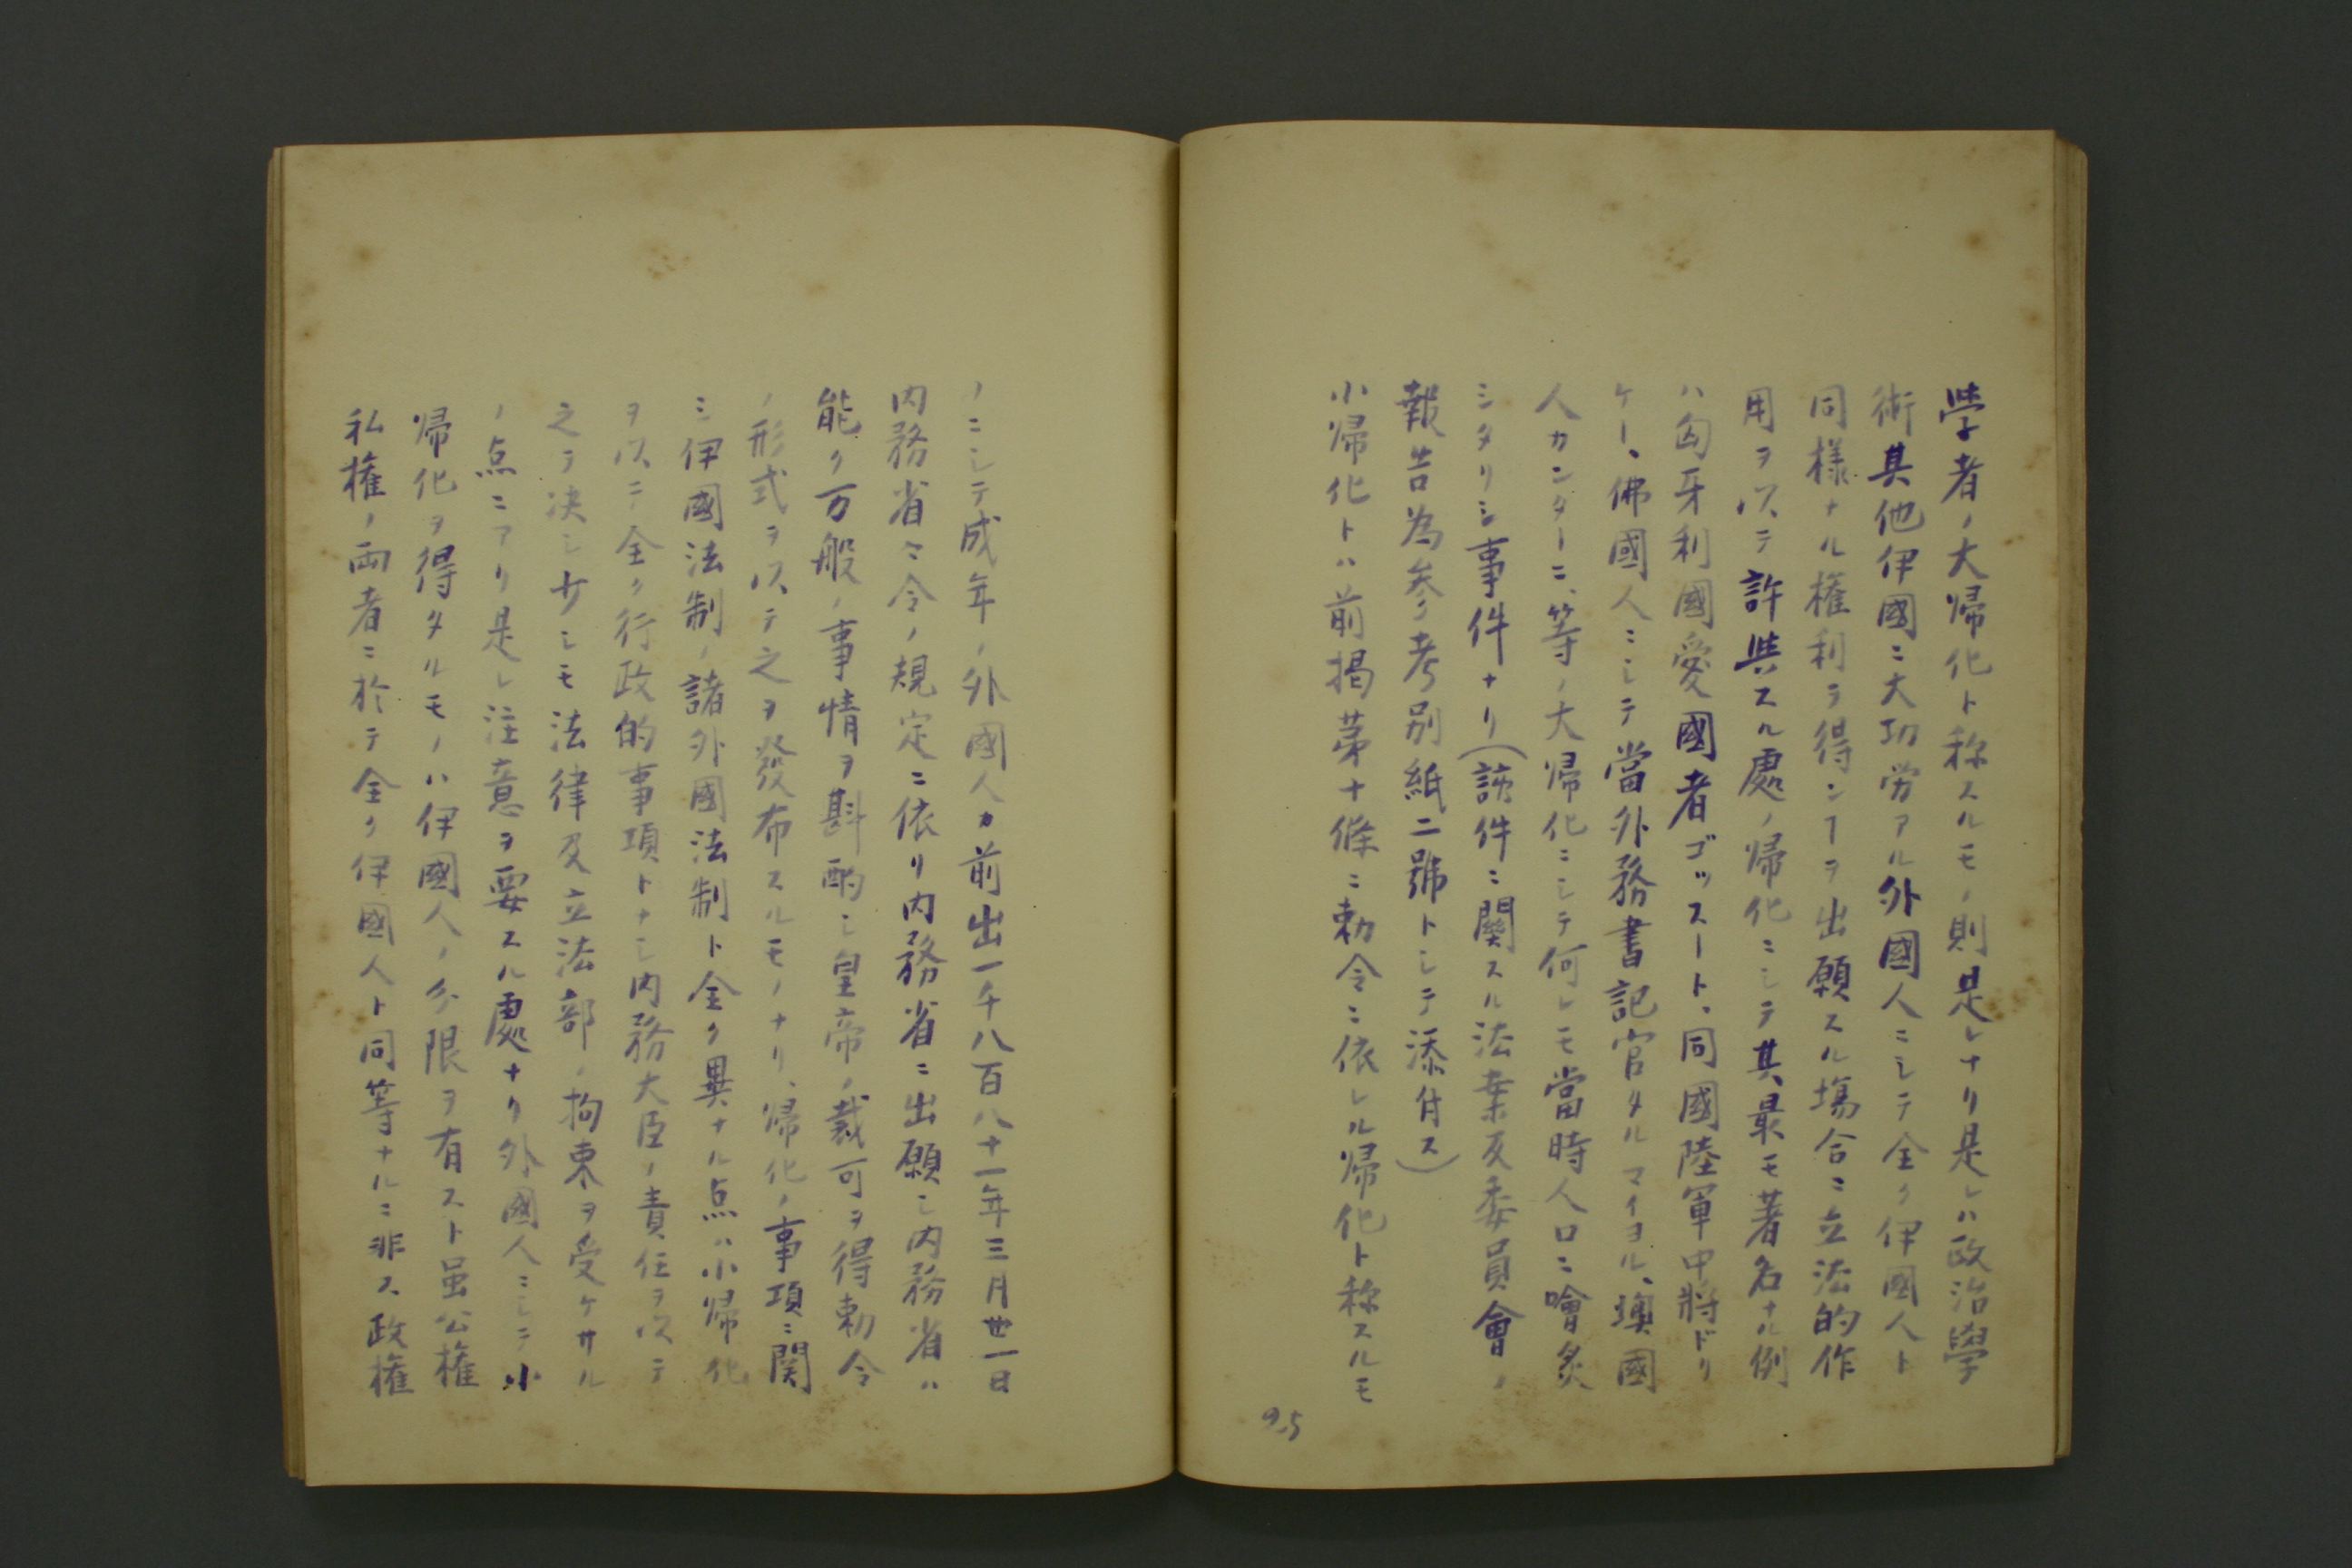 学者ノ大帰化ト称スルモノ則是レナリ是レハ政治學
術其他伊國ニ大功労アル外國人ニシテ全ク伊國人ト
同様ナル権利ヲ得ンヿヲ出願スル塲合ニ立法的作
用ヲ以テ許與スル處ノ帰化ニシテ其最モ著名ナル例
ハ匈牙利國愛國者ゴッスート、同國陸軍中將ドリ
ケー、佛國人ニシテ當外務書記官タルマイヨル、澳國
人カンターニ、等ノ大帰化ニシテ何レモ當時人口ニ噲炙
シタリシ事件ナリ(該件ニ関スル法案及委員會ノ
報告為参考別紙二號トシテ添付ス)
小帰化トハ前掲第十條ニ勅令ニ依レル帰化ト称スルモ
95
ノニシテ成年ノ外國人カ前出一千八百八十一年三月卅一日
内務省令ノ規定ニ依リ内務省ニ出願シ内務省ハ
能ク万般ノ事情ヲ斟酌シ皇帝ノ裁可ヲ得勅令
ノ形式ヲ以テ之ヲ發布スルモノナリ、帰化ノ事項ニ関
シ伊國法制ノ諸外國法制ト全ク異ナル点ハ小帰化
ヲ以テ全ク行政的事項トナシ内務大臣ノ責任ヲ以テ
之ヲ決シ少シモ法律及立法部ノ拘束ヲ受ケサル
ノ点ニアリ是レ注意ヲ要スル處ナリ外國人ニシテ小
帰化ヲ得タルモノハ伊國人ノ分限ヲ有スト虽公権
私権ノ両者ニ於テ全ク伊國人ト同等ナルニ非ス政権